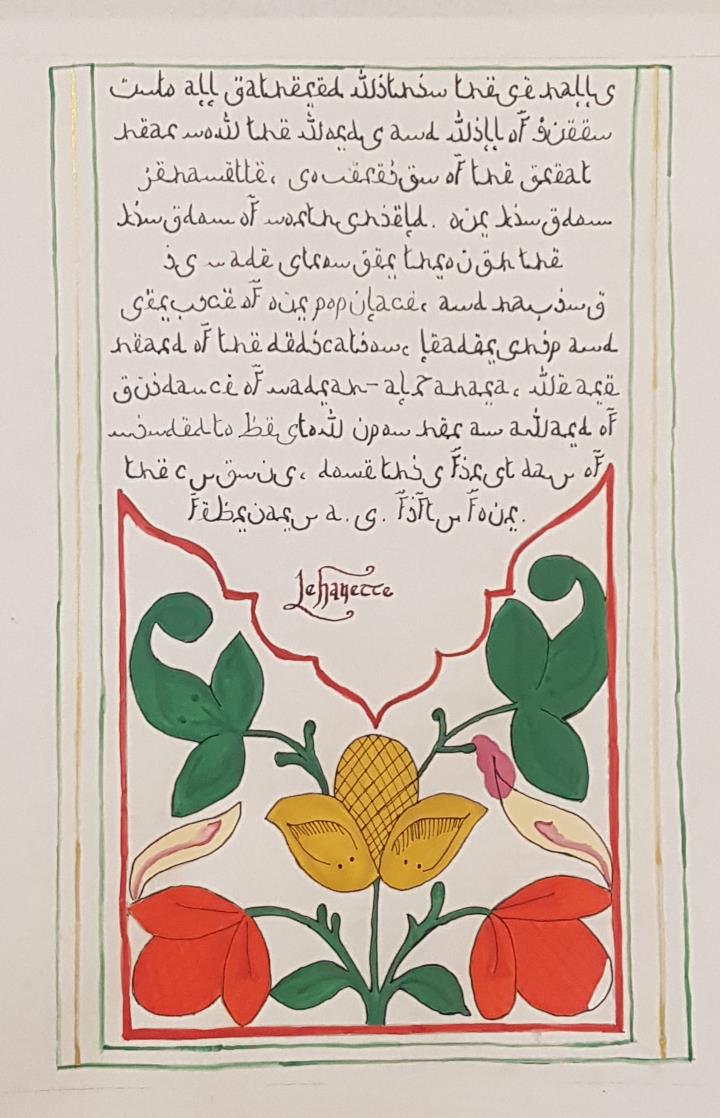 unto all gathered within these halls
hear now the words and will of queen
jehanette, sovereign of the great
kingdom of northshield. our kingdom
is made stronger through the
service of our populace, and having
heard of the dedication, leadership and
guidance of nadrah-al zahara, we are
minded to bestow upon her an award of
the cygnus, done this first day of
february a. s. fifty four.
Jehanette